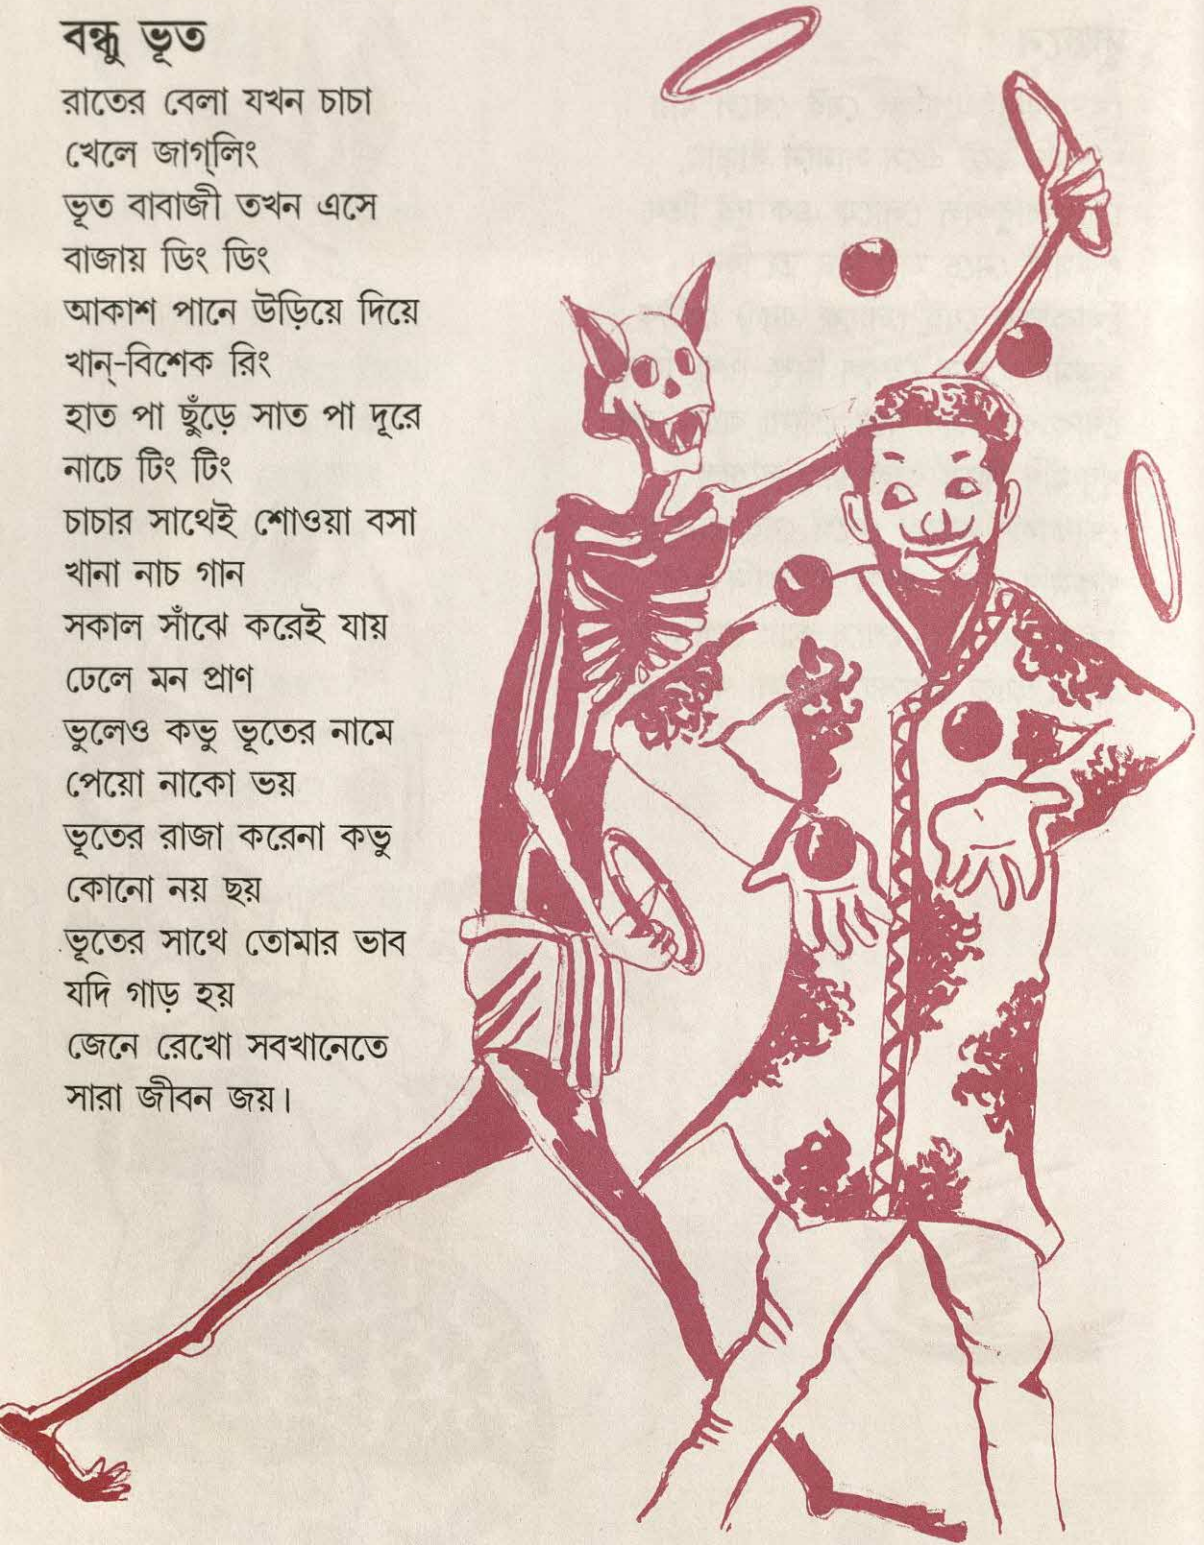 বন্ধু ভূত
রাতের বেলা যখন চাচা
খেলে জাগ্‌লিং
ভূত বাবাজী তখন এসে
বাজায় ডিং ডিং
আকাশ পানে উড়িয়ে দিয়ে
খান্-বিশেক রিং
হাত পা ছুঁড়ে সাত পা দূরে
নাচে টিং টিং
চাচার সাথেই শোওয়া বসা
খানা নাচ গান
সকাল সাঁঝে করেই যায়
ঢেলে মন প্রাণ
ভুলেও কভু ভূতের নামে
পেয়ো নাকো ভয়
ভূতের রাজা করেনা কভু
কোনো নয় ছয়
ভূতের সাথে তোমার ভাব
যদি গাড় হয়
জেনে রেখো সবখানেতে
সারা জীবন জয়।